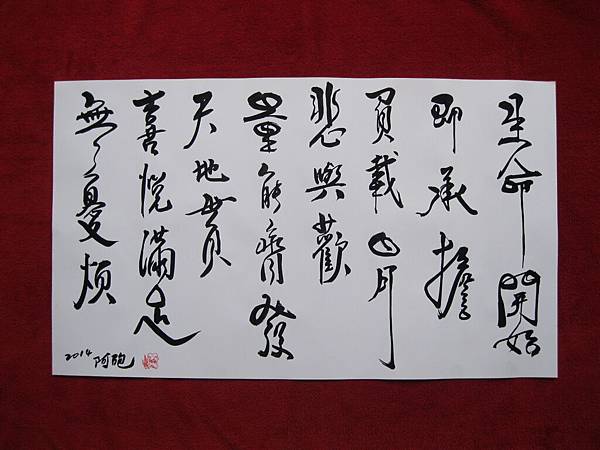 生命開始
即承擔
負載日月
悲與歡
量能齊發
天地貫
喜悅滿足
無憂煩
2014 阿砲